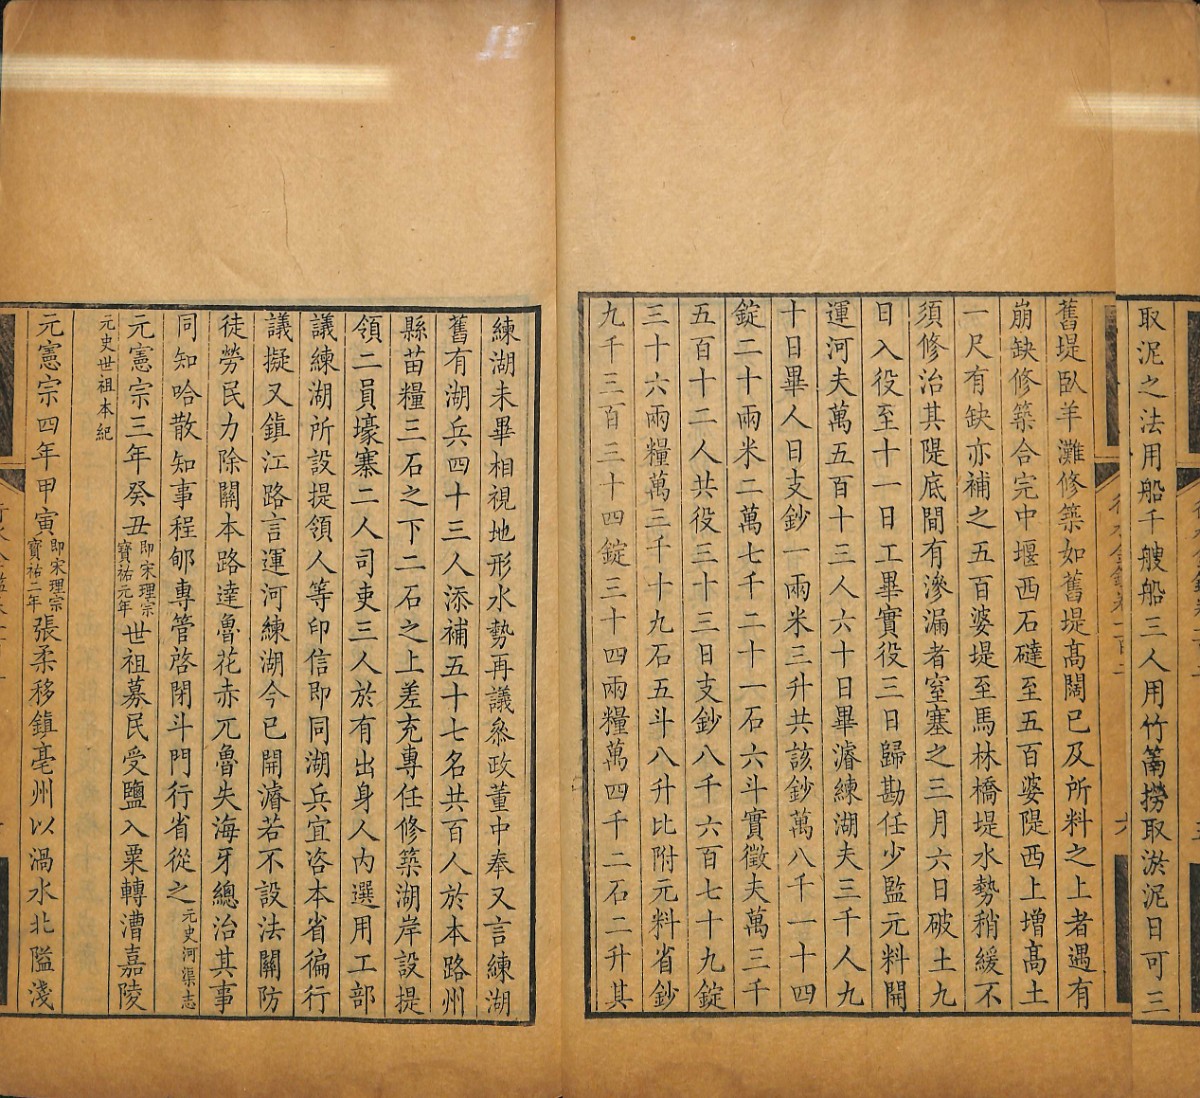 取泥之法用船千艘船三人用竹䈬撈取淤泥日可三
舊堤臥羊灘修築如舊堤高闊已及所料之上者遇有
崩缺修築合完中堰西石䃮至五百婆隄西上增高土
一尺有缺亦補之五百婆堤至馬林橋堤水勢稍緩不
須修治其隄底間有滲漏者窒塞之三月六日破土九
日入役至十一日工畢實役三日歸勘任少監元料開
運河夫萬五百十三人六十日畢濬練湖夫三千人九
十日畢人日支鈔一兩米三升共該鈔萬八千一十四
錠二十兩米二萬七千二十一石六斗實徵夫萬三千
五百十二人共役三十三日支鈔八千六百七十九錠
三十六兩糧萬三千十九石五斗八升比附元料省鈔
九千三百三十四錠三十四兩糧萬四千二石二升其
練湖未畢相視地形水勢再議叅政董中奉又言練湖
舊有湖兵四十三人添補五十七名共百人於本路州
縣苗糧三石之下二石之上差充專任修築湖岸設提
領二員壕寨二人司吏三人於有出身人內選用工部
議練湖所設提領人等印信即同湖兵宜咨本省徧行
議擬又鎮江路言運河練湖今已開濬若不設法關防
徒勞民力除關本路達魯花赤兀魯失海牙總治其事
同知哈散知事程郇專管啓閉斗門行省從之元史河渠志
元憲宗三年癸丑即宋理宗寶祐元年世祖募民受鹽入粟轉漕嘉陵
元史世祖本紀
元憲宗四年甲寅即宋理宗寶祐二年張柔移鎮亳州以渦水北隘淺